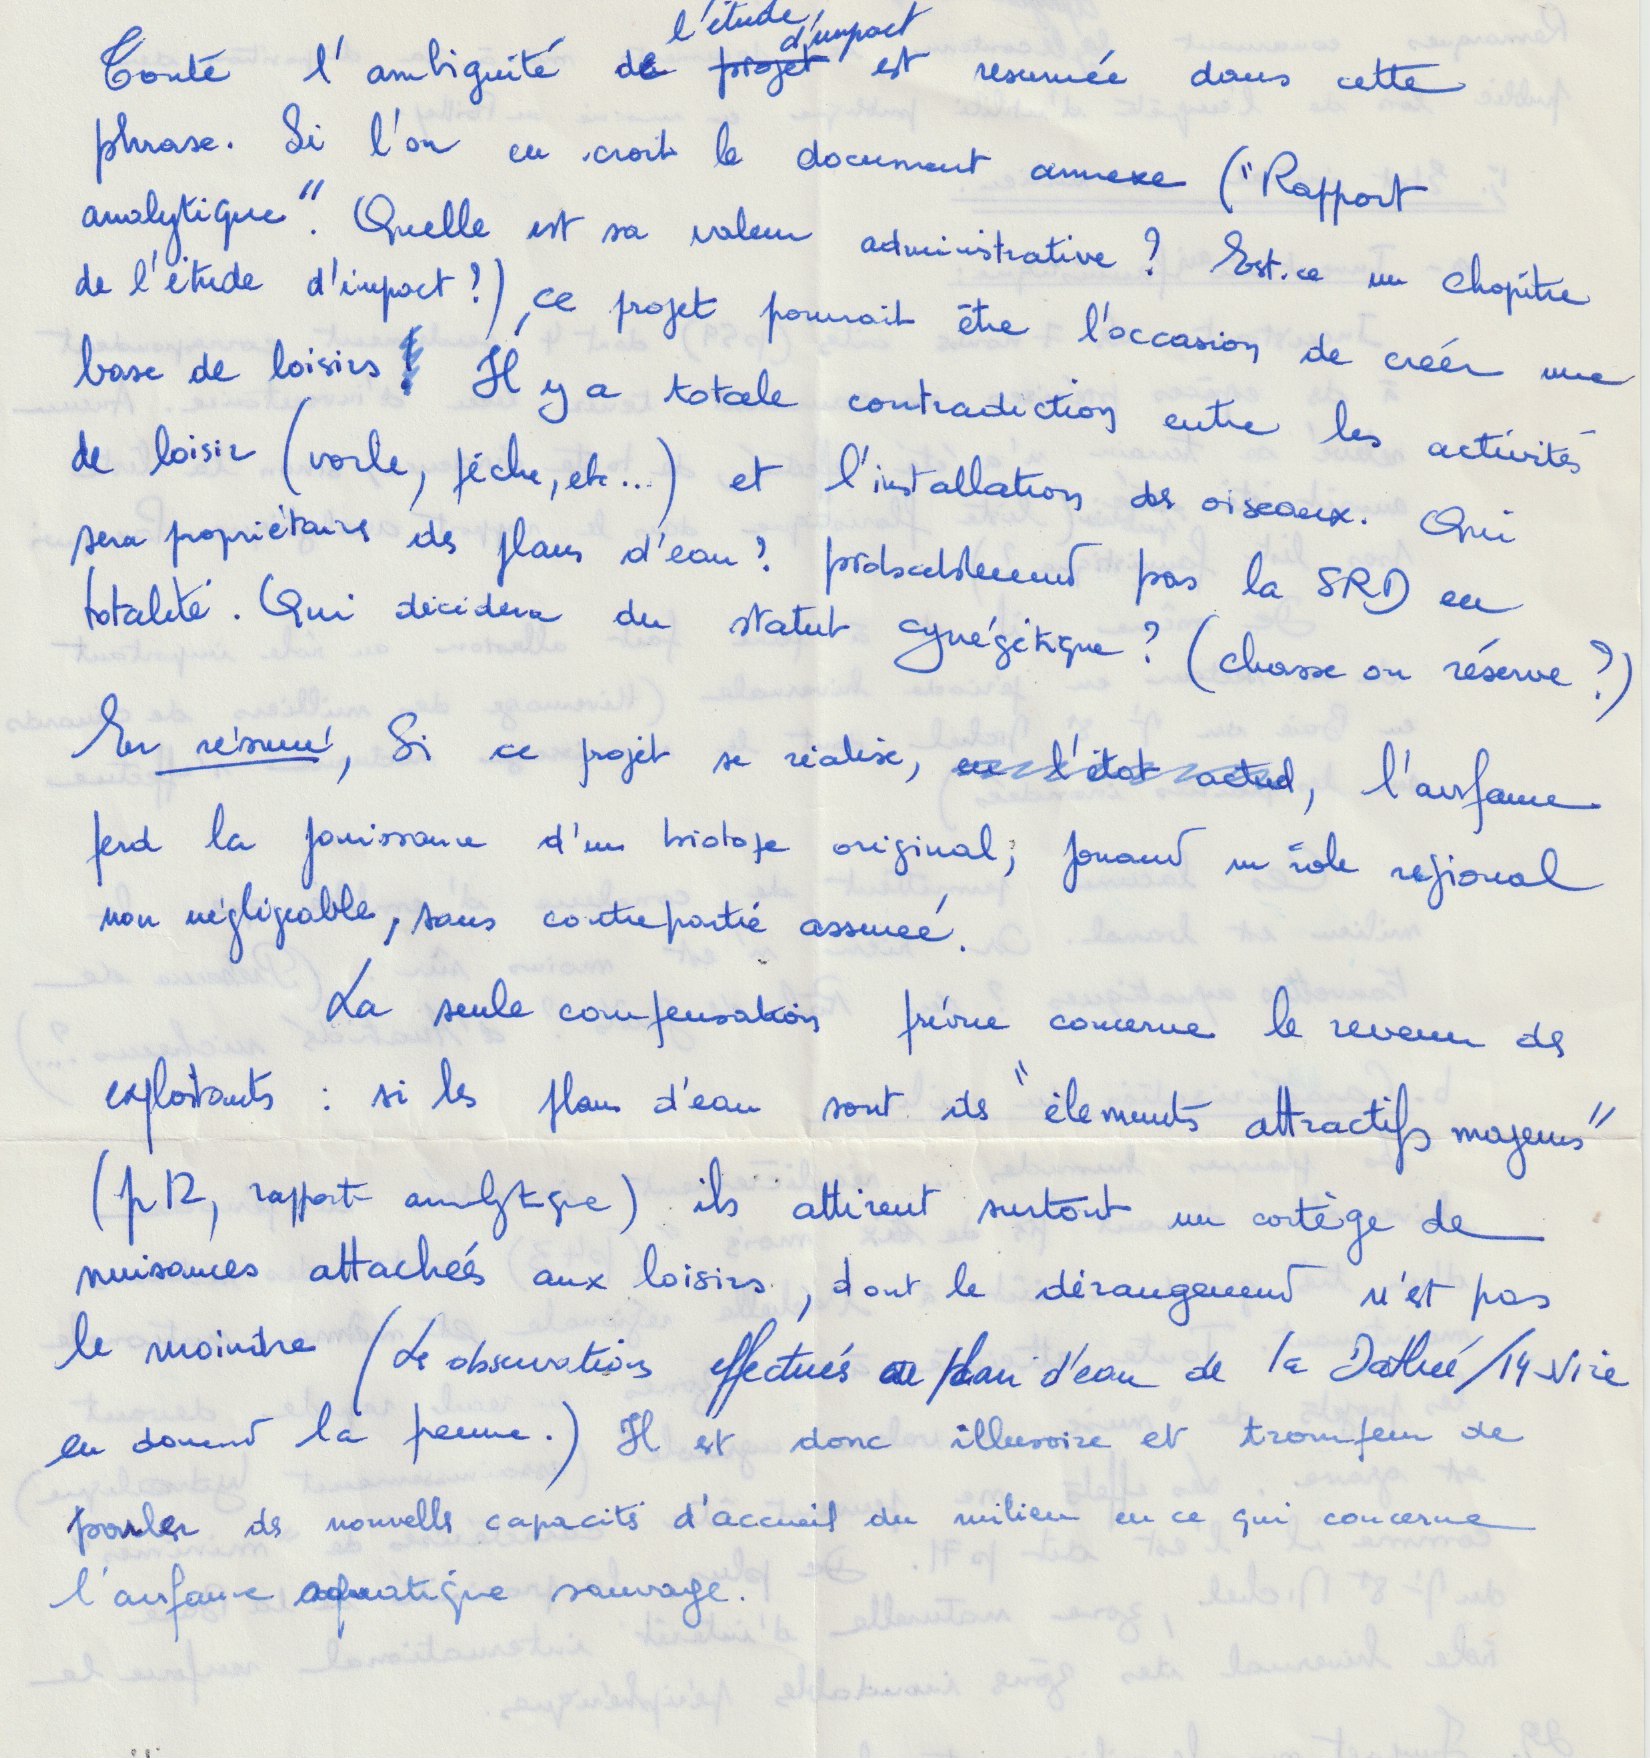 l'étude d'impact
Toute l'ambiguité de projet est resumée dans cette
phrase. Si l'on en croit le document annexe ("Rapport
analytique". Quelle est sa valeur administrative ? Est-ce un chapitre
de l'étude d'impact ?), ce projet pourrait être l'occasion de créer une
base de loisirs ! Il y a totale contradiction entre les activités
de loisir (voile, pêche, etc...) et l'installation des oiseaux. Qui
sera propriétaire des plans d'eau ? probablement pas la SRD en
totalité. Qui décidera du statut cynégétique ? (chasse ou réserve ?)
En résumé, Si ce projet se réalise, en l'état actuel, l'avifaune
perd la jouissance d'un biotope original, jouant un rôle régional
non négligeable, sans contrepartie assurée.
La seule compensation prévue concerne le revenu des
exploitants : si les plans d'eau sont des "élements attractifs majeurs"
(p 12, rapport analytique) ils attirent surtout un cortège de
nuisances attachées aux loisirs, dont le dérangement n'est pas
le moindre (Les observations effectués au plan d'eau de la Dathée/14 Vire
en donnent la preuve.) Il est donc illusoire et trompeur de
parler de nouvelles capacités d'accueil du milieu en ce qui concerne
l'avifaune aquatique sauvage.